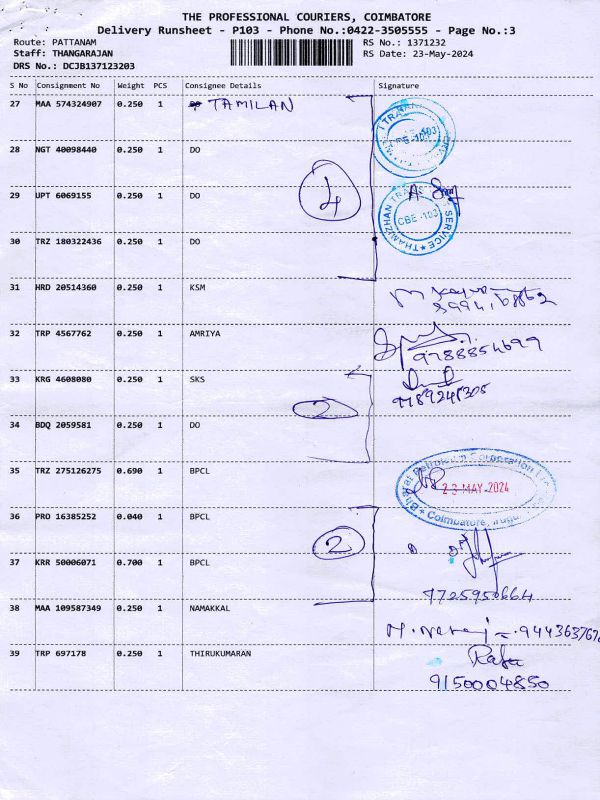 THE PROFESSIONAL COURIERS, COIMBATORE
Delivery Runsheet - P103 - Phone No.:0422-3505555 - Page No.:3
Route: PATTANAM RS No.: 1371232
Staff: THANGARAJAN RS Date: 23-May-2024
DRS No.: DCJB137123203
S No Consignment No Weight PCS Consignee Details Signature
27 MAA 574324907 0.250 1 TAMILAN
28 NGT 40098440 0.250 1 DO
4
29 UPT 6069155 0.250 1 DO
THAMIZHAN TRA CBE -103 SERVICE
30 TRZ 180322436 0.250 1 DO
31 HRD 20514360 0.250 1 KSM
32 TRP 4567762 0.250 1 AMRIYA
9788854699
33 KRG 4608080 0.250 1 SKS
9789245305
2
34 BDQ 2059581 0.250 1 DO
35 TRZ 275126275 0.690 1 BPCL
Bharat Petroleum Corporation
23 MAY 2024
Coimbatore,
36 PRO 16385252 0.040 1 BPCL
2
37 KRR 50006071 0.700 1 BPCL
7725950664
38 MAA 109587349 0.250 1 NAMAKKAL
39 TRP 697178 0.250 1 THIRUKUMARAN
Raja
9150004850